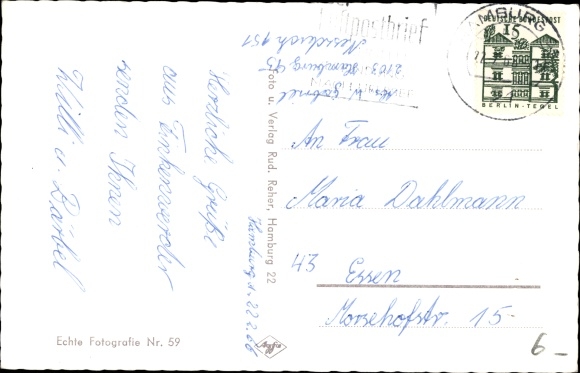 Herzliche Grüße
aus Finkenwerder
senden Ihnen
Willi u. Bärbel
Hamburg, d. 22.2.66
Echte Fotografie Nr. 59
Foto u. Verlag Rud. Reher, Hamburg 22
Agfa
W. Gabriel
2103 Hamburg 95
postbrief
HAMBURG
DEUTSCHE BUNDESPOST
15
BERLIN-TEGEL
An Frau
Maria Dahlmann
43 Essen
Morsehofstr. 15
6-